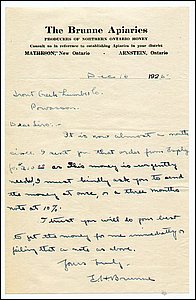 The Brunne Apiaries
PRODUCERS OF NORTHERN ONTARIO HONEY
Consult us in reference to establishing Apiaries in your district
MATHESON, New Ontario - ARNSTEIN, Ontario
Dec 10 192
Trout Creek Lumber Co.
Powassan.
Dear Sirs:-
It is now almost a month
since I sent for that order from
for $ as this money is urgently
needed I must kindly ask you to send
the money at once, or a three months
note at 10%.
I trust you will do your best
to get the money for me immediately or
failing that a note as above.
Yours truly,
Brunne